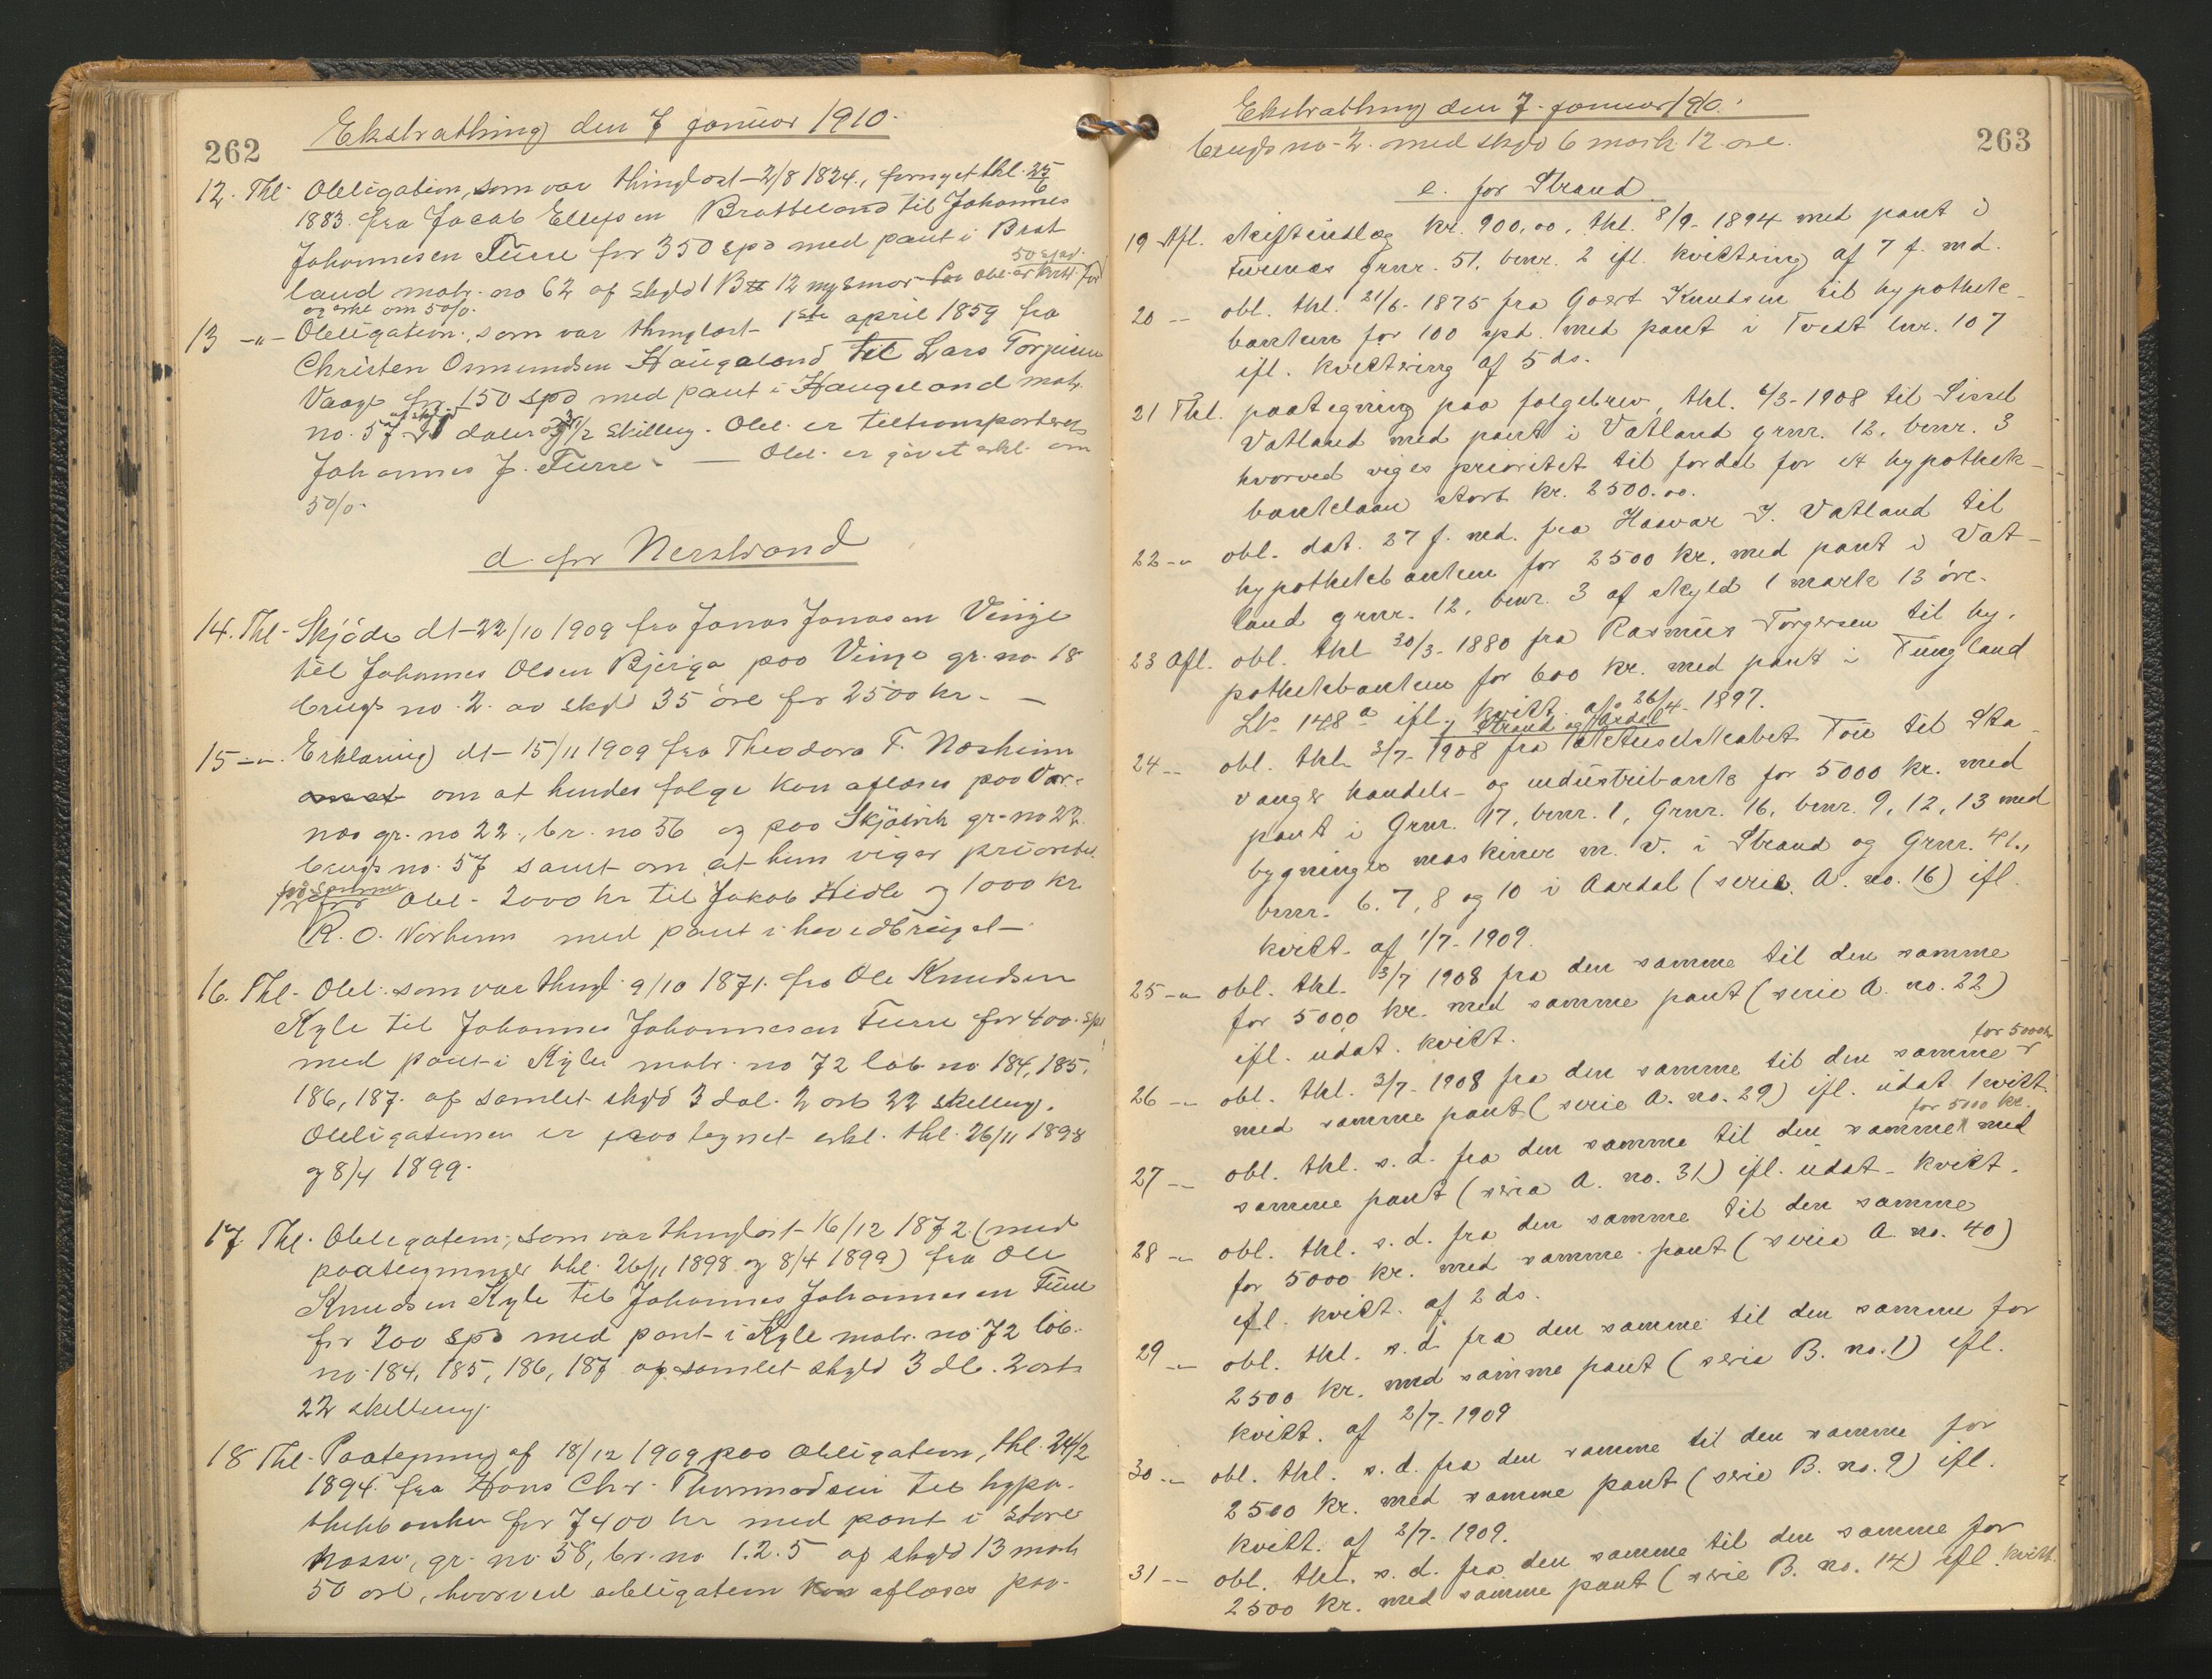 262
Ekstrathing den 7 januar 1910.
12. Thl. Obligation, som var thinglæst 2/8 1824., fornyet thl. 25/6
1883. fra Jacob Ellefsen Bratteland til Johannes
Johannesen Furre for 350 spd med pant i Brat
50 spd.
land matr. no 62 af skyld 1 B 12 mgSmør for obl. er kvitt. for
og erkl om 5%.
13 -"- Obligation, som var thinglæst 1ste april 1859 fra
Christen Osmundsen Haugaland til Lars Torjusen
Vaage for 150 spd med pant i Haugaland matr.
no. 57 af skyld 1 daler 1/2 skilling. Obl. er tiltransporteret
Johannes J. Furre. — Obl. er givet erkl. om
5%.
d. for Nerstrand
14. Thl. Skjøde dt 22/10 1909 fra Jonas Jonasen Vinje
til Johannes Olsen Bjerga paa Vinje gr. no. 18
brugs no. 2. av skyld 35 øre for 2500 kr. —
15 -"- Erklæring dt 15/11 1909 fra Theodora T. Nosheim
om at hendes folge kan aflæses paa Var-
nes gr. no 22., br. no 56 og paa Skjølvik gr. no 22.
brugs no. 57 samt om at hun viger prioritet
paa samme
for obl. 2000 kr til Jakob Hidle og 1000 kr
R. O. Norheim med pant i hovedbruget —
16. Thl. Obl. som var thingl. 9/10 1871. fra Ole Knudsen
Kyle til Johannes Johannesen Furre for 400. spd
med pant i Kyle matr. no 72 løb no 184, 185,
186, 187. af samlet skyld 3 dal. 2 ort 22 skilling.
Obligationen er paategnet erkl. thl. 26/11 1898
og 8/4 1899.
17 Thl. Obligation, som var thinglæst 16/12 1872 (med
paategninger thl. 26/11 1898 og 8/4 1899) fra Ole
Knudsen Kyle til Johannes Johannesen Furre
for 200 spd med pant i Kyle matr. no. 72 løb.
no. 184, 185, 186, 187 af samlet skyld 3 dl. 2 ort
22 skilling.
18 Thl. Paategning af 18/12 1909 paa obligation, thl. 24/2
1894. fra Hans Chr. Thormodsen til hypo-
thekbanken for 7400 kr med pant i Store
gr. no. 58, br. no 1. 2. 5 af skyld 13 mark
50 øre, hvorved obligation kan aflæses paa.
263
Ekstrathing den 7. januar 1910.
brugs no. 2. med skyld 6 mark 12 øre.
e. for Strand
19 Afl. skifteudlæg kr. 900,00, thl. 8/9. 1894 med pant i
Furenes grnr. 51, bnr. 2 ifl. kvittring af 7 f. md.
20 -"- obl. thl. 21/6. 1875 fra Goert Knutsen til hypothek-
banken for 100 spd. med pant i Tvedt lnr. 107
ifl. kvittering af 5 ds.
21 Thl. paategning paa folgebrev, thl. 6/3. 1908 til Sissel
Vatland med pant i Vatland grnr. 12, bnr. 3
hvorved viges prioritet til fordel for et hypothek-
banklaan stort kr. 2500.00.
22 -"- obl. dat. 27 f. md. fra Haavar J. Vatland til
hypothekbanken for 2500 kr. med pant i Vat-
land grnr. 12, bnr. 3 af skyld 1 mark 13 øre.
23 Afl. obl. thl 30/3. 1880 fra Rasmus Torgersen til hy.
pothekbanken for 600 kr. med pant i Tungland
Ls. 148 a ifl. kvitt. af 26/4. 1897.
Strand og Aardal
24 -"- obl. thl. 3/7. 1908 fra Aktieselskabet Tou til Sta
vanger handels- og industribank for 5000 kr. med
pant i Grnr. 17, bnr. 1, Grnr. 16, bnr. 9, 12, 13 med
bygninger maskiner m. v. i Strand og Grnr. 41.,
bnr. 6. 7, 8 og 10 i Aardal (serie A. no. 16) ifl.
kvitt. af 1/7. 1909.
25 -"- obl. thl. 3/7 1908 fra den samme til den samme
for 5000 kr. med samme pant (serie A. no. 22)
ifl. udat. kvitt.
for 5000 kr
26 -"- obl. thl. 3/7. 1908 fra den samme til den samme
med samme pant (serie A. no. 29) ifl. udat. kvitt.
for 5000 kr.
27 -"- obl. thl. s. d. fra den samme til den samme med
samme pant (serie A. no. 31) ifl. udat. kvitt.
28 -"- obl. thl. s. d. fra den samme til den samme
for 5000 kr. med samme pant (serie A. no. 40)
ifl. kvitt. af 2 ds.
29 -"- obl. thl. s. d. fra den samme til den samme for
2500 kr. med samme pant (serie B. no. 1) ifl.
kvitt. af 2/7. 1909
30 -"- obl. thl. s. d. fra den samme til den samme for
2500 kr. med samme pant (serie B. no. 9) ifl.
kvitt. af 2/7. 1909.
31 -"- obl. thl. s. d. fra den samme til den samme for
2500 kr. med samme pant (serie B. no. 14) ifl. kvitt.